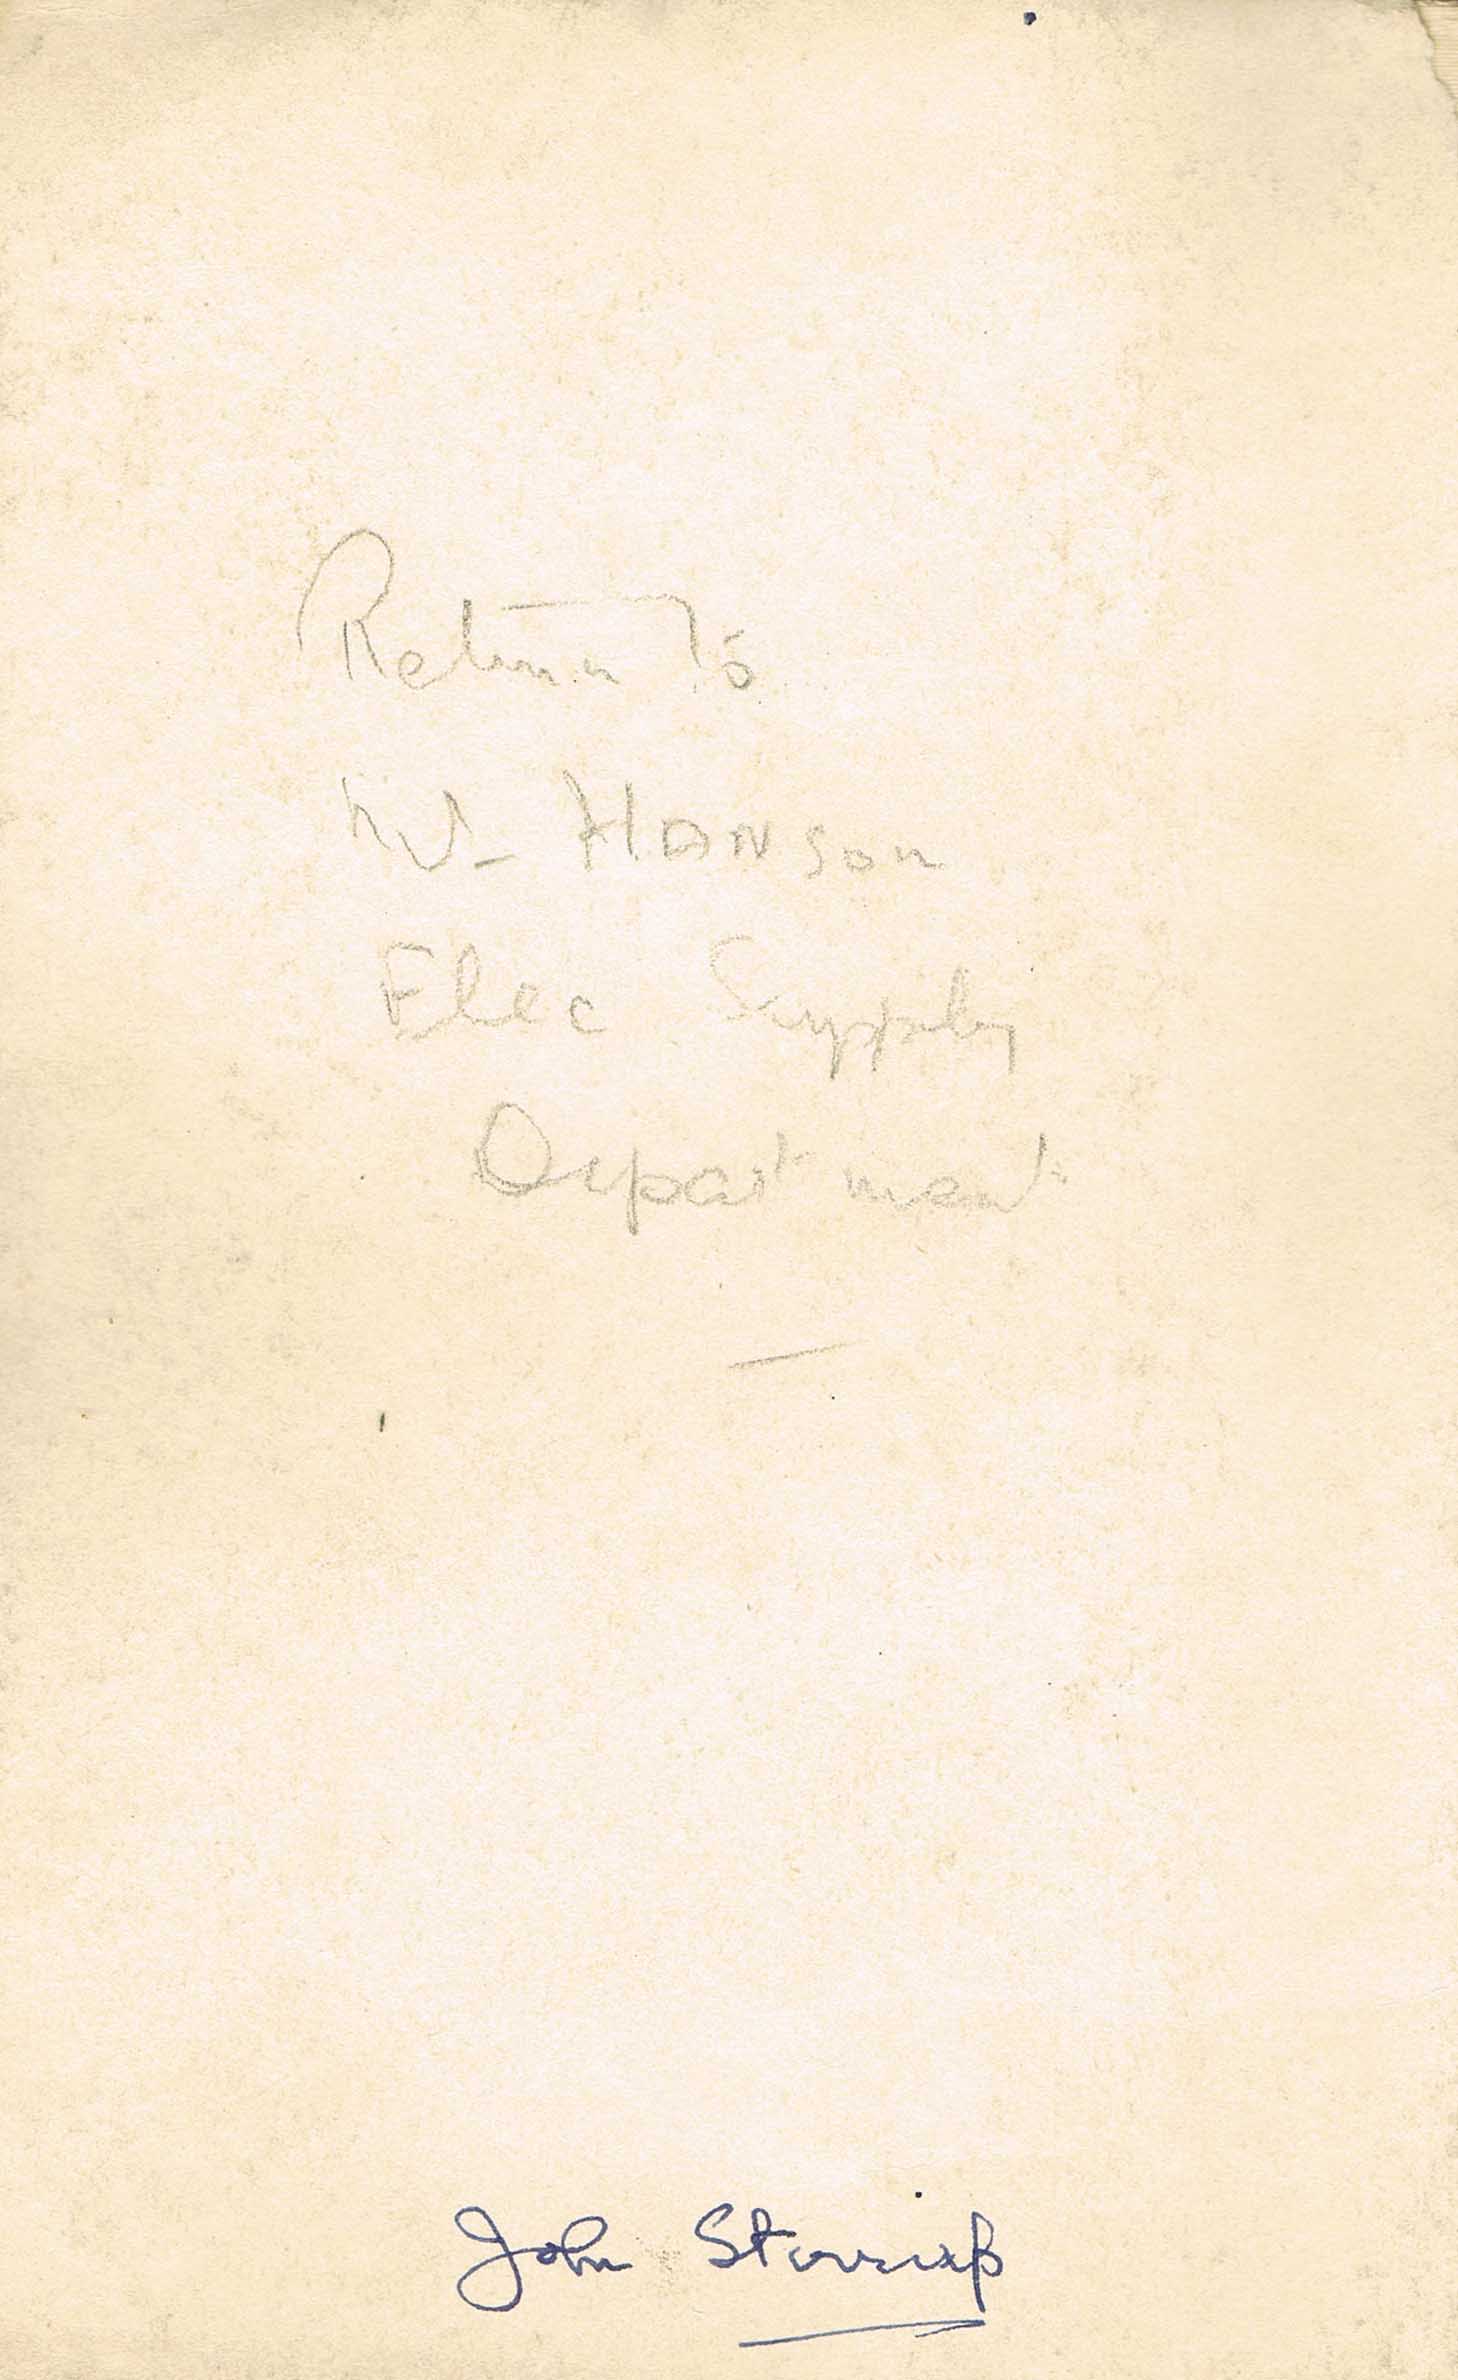 Return To
Mr HANSON
Elec Supply
Department
John